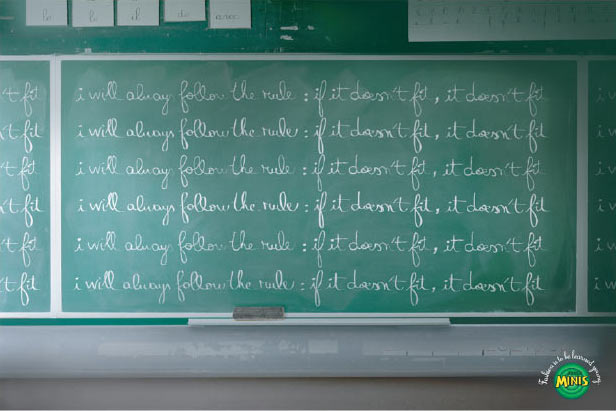 't fit
't fit
't fit
't fit
't fit
't fit
i will alway follow the rule : if it doesn't fit, it doesn't fit
i will always follow the rule : if it doesn't fit, it doesn't fit
i will alway follow the rule : if it doesn't fit, it doesn't fit
i will always follow the rule : if it doesn't fit, it doesn't fit
i will alway follow the rule : if it doesn't fit, it doesn't fit
i will always follow the rule : if it doesn't fit, it doesn't fit
Fashion is to be learned young.
MINIS